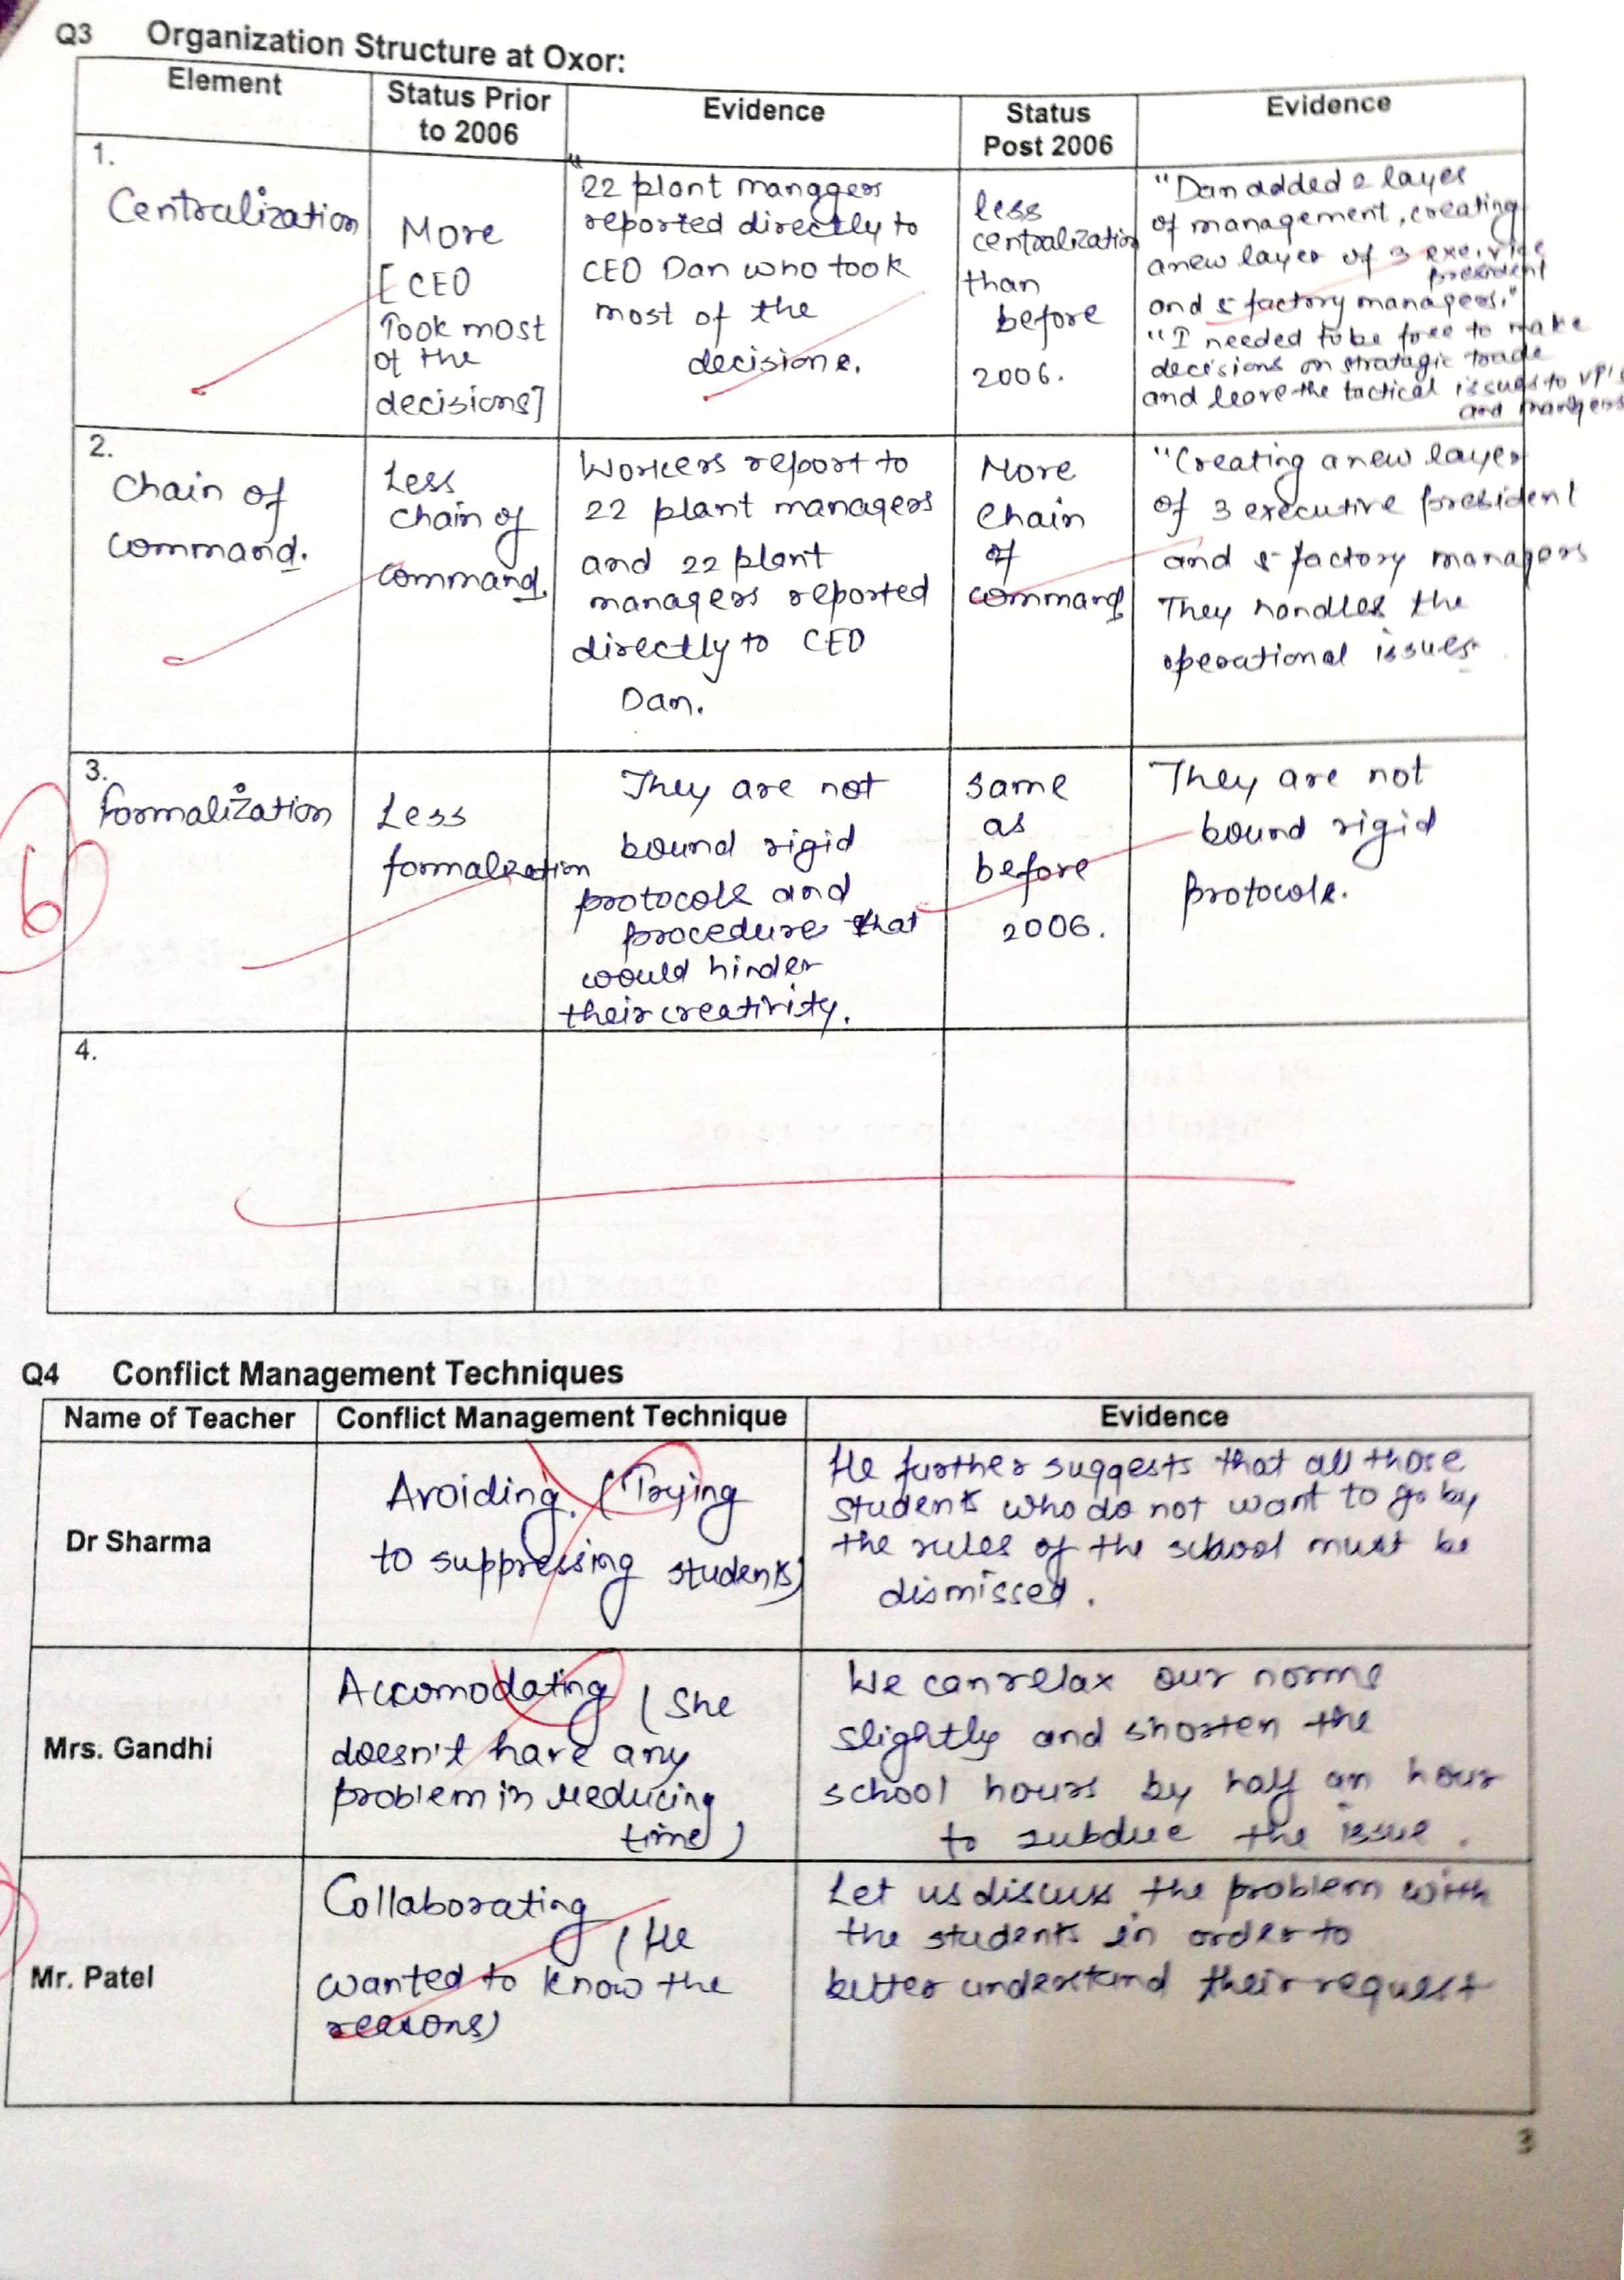 Q3 Organization Structure at Oxor:
Element
Status Prior
to 2006
Evidence
Status
Post 2006
Evidence
1.
Centralization
More
[CEO
Took most
of the
decisions]
"22 plant managers
reported directly to
CEO Dan who took
most of the
decisions.
less
centralization
than
before
2006.
"Dan added 2 layer
of management, creating
a new layer of 3 exe. vice
president
and 5 factory managers."
"I needed to be free to make
decisions on stratagic trade
and leave the tactical issues to VP's
and managers
2.
Chain of
Command.
Less
chain of
command.
Workers report to
22 plant managers
and 22 plant
managers reported
directly to CEO
Dan.
More
Chain
of
command
"Creating a new layer
of 3 executive president
and 5 factory managers
They handles the
operational issues
3.
Formalization
Less
formalization
They are not
bound rigid
protocols and
procedures that
would hinder
their creativity.
same
as
before
2006.
They are not
bound rigid
protocols.
6
4.
Q4 Conflict Management Techniques
Name of Teacher
Conflict Management Technique
Evidence
Dr Sharma
Avoiding. (Trying
to suppressing students)
He further suggests that all those
students who do not want to go by
the rules of the school must be
dismissed.
Mrs. Gandhi
Accomodating (She
doesn't have any
problem in reducing
time)
We can relax our norms
slightly and shorten the
school hours by half an hour
to subdue the issue.
Mr. Patel
Collaborating
(He
wanted to know the
reasons)
Let us discuss the problem with
the students in order to
better understand their request
3